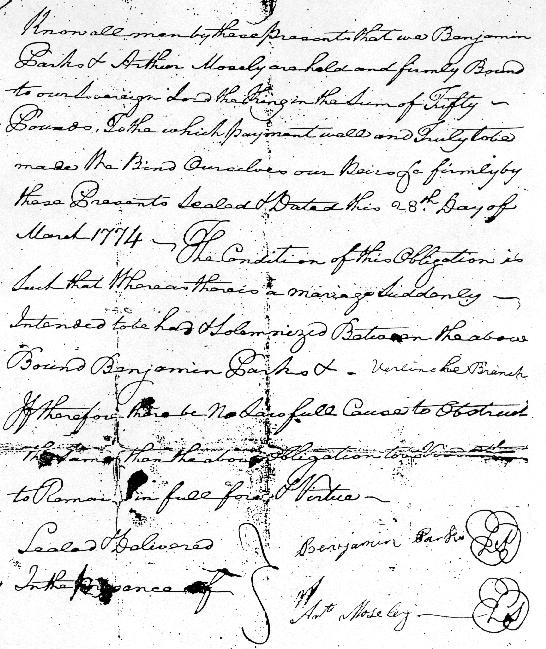 Know all men by these presents that we Benjamin
Parks & Arthur Mosely are held and firmly Bound
to our Sovereign Lord the King in the Sum of Fifty –
Pounds. To the which payment well and Truly to be
made the Bind Ourselves our Heirs &c firmly by
these Presents Sealed & Dated this 28th Day of
March 1774 – The Condition of this Obligation is
Such that Whereas there is a marage Suddenly –
Intended to be had & Solemnized Between the above
Bound Benjamin Parks & - Branch
If therefore there be No Lawfull Cause to Obstruct
the Same then the above Obligation to
to Remain in full force & Virtue –
Sealed & Delivered
In the Presence of
Benjamin Parks LS
Arth Moseley LS